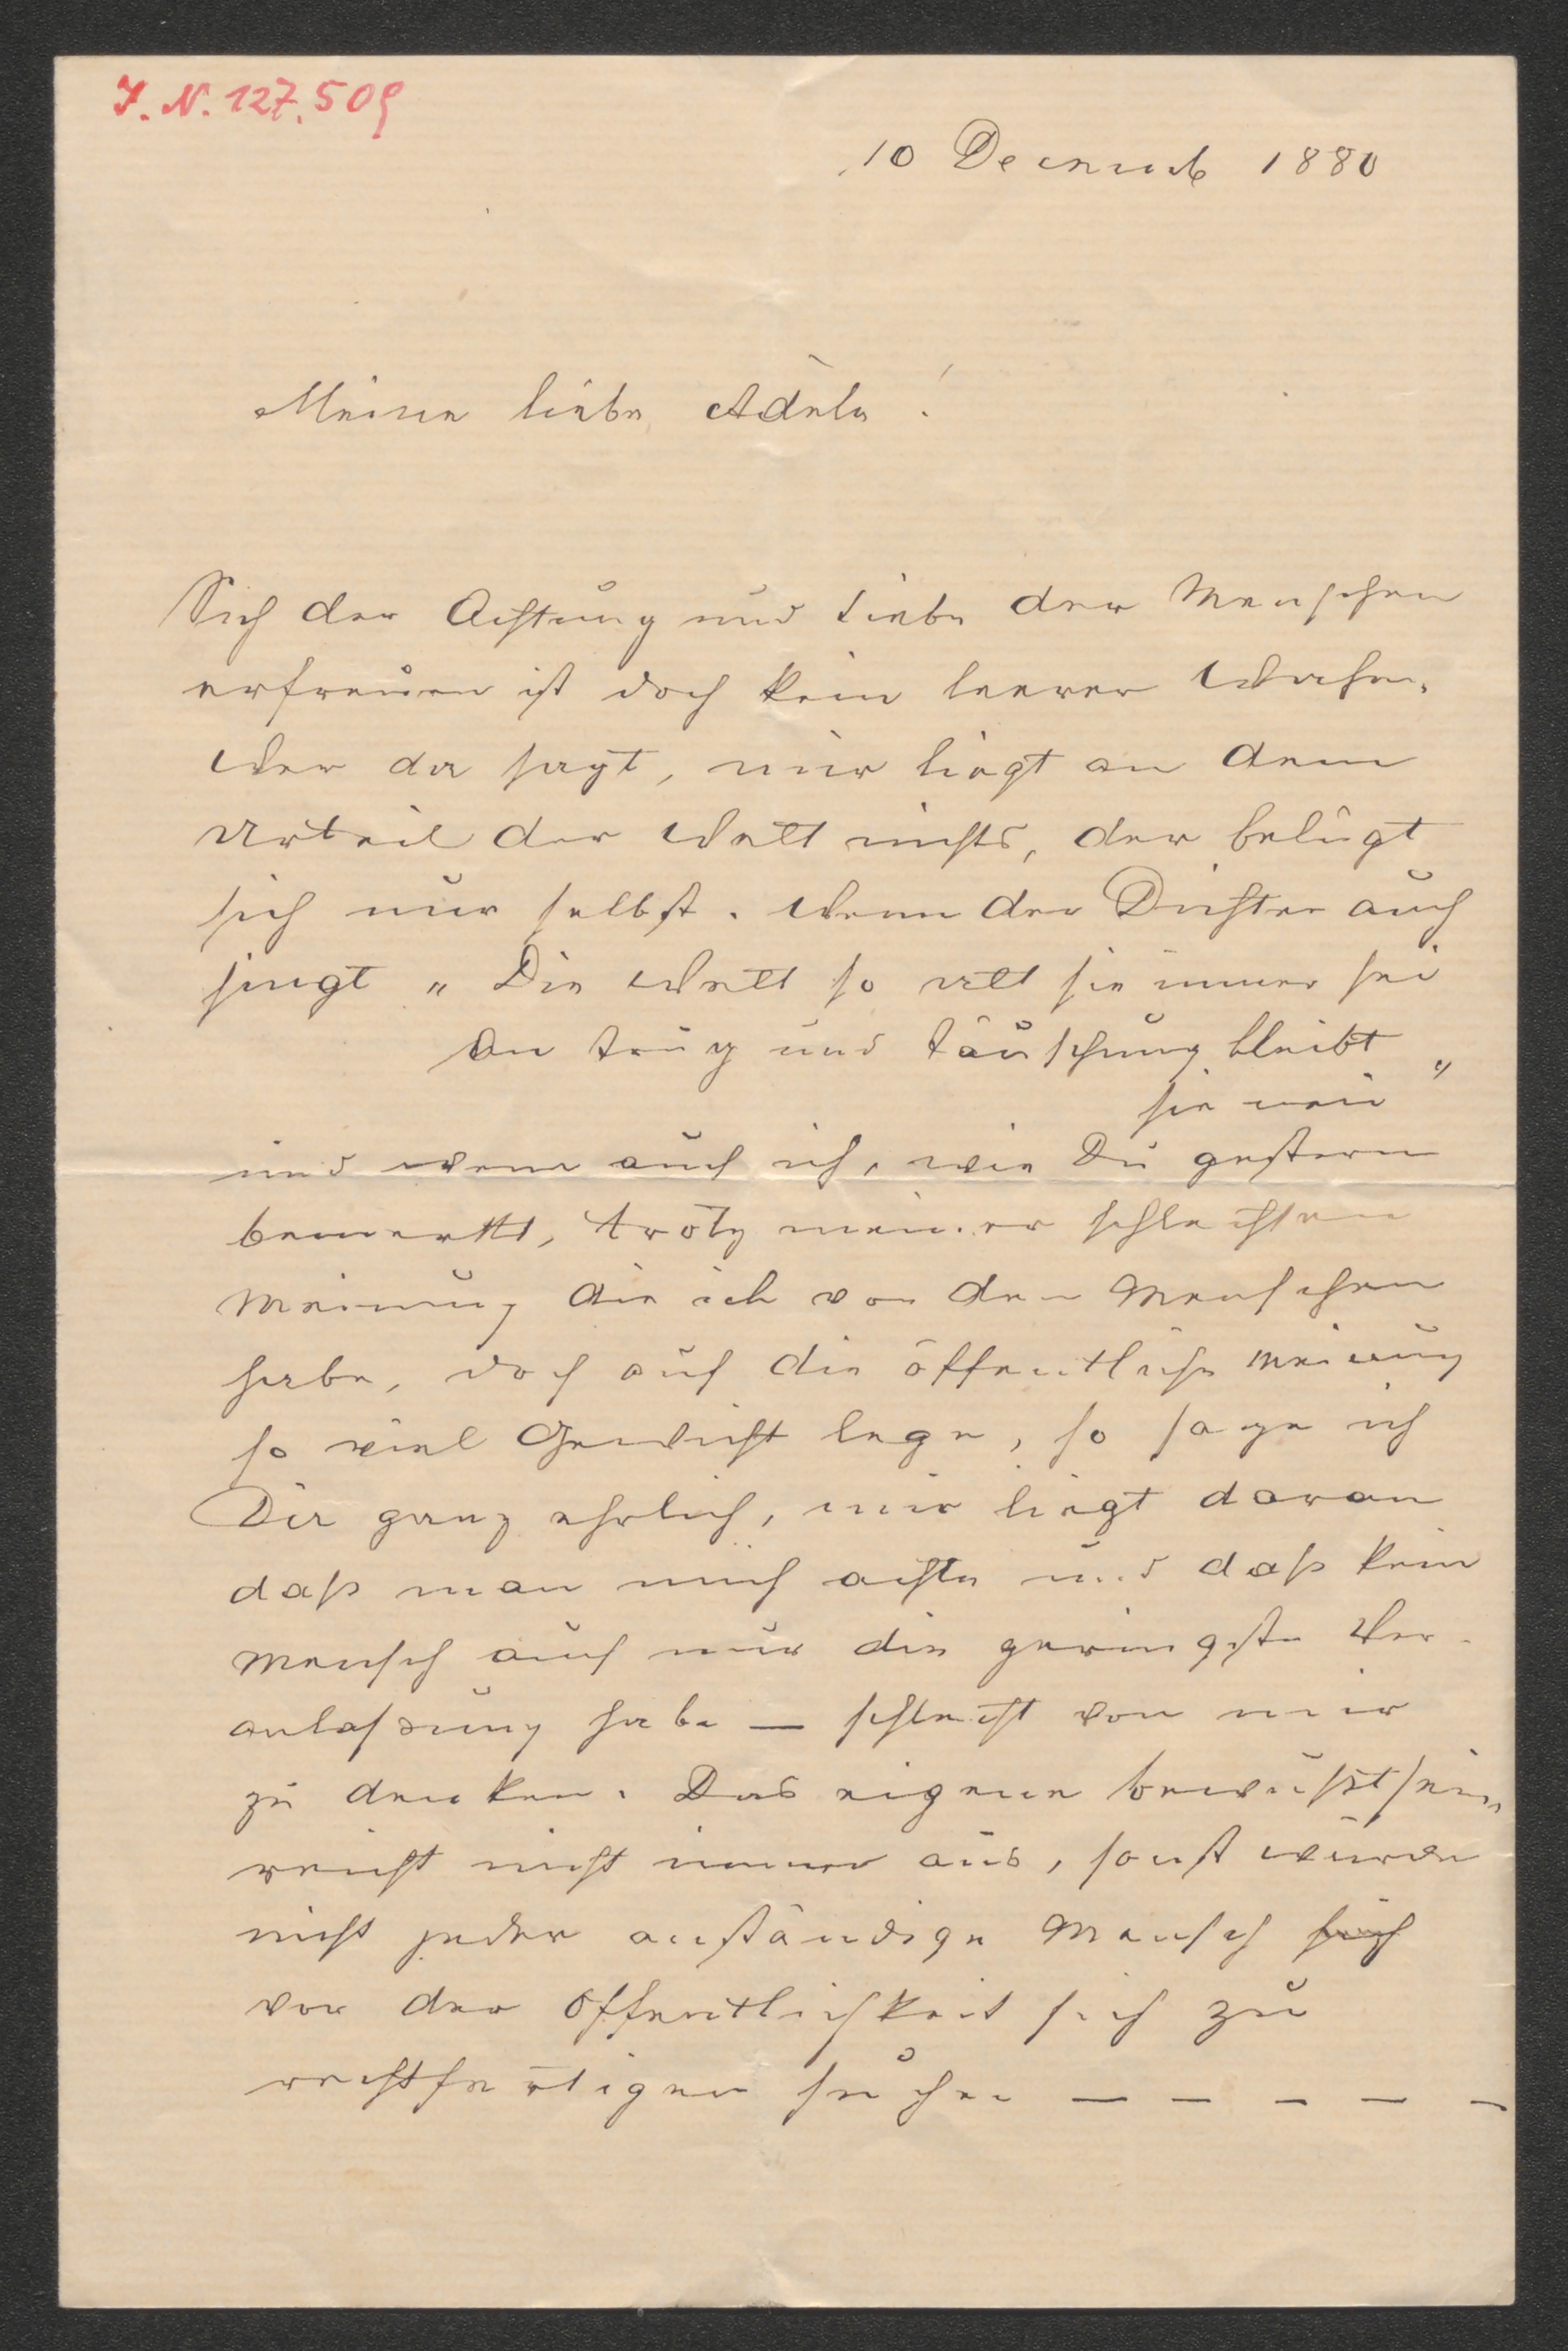 I. N. 127.509
10 Decemb 1880
Meine liebe Adèle!
Sich der Achtung und Liebe der Menschen
erfreuen ist doch kein leerer Wahn,
Wer da sagt, mir liegt an dem
Urteil der Welt nichts, der belügt
sich nur selbst. Wenn der Dichter auch
singt „Die Welt so alt sie immer sei
An Trug und Täuschung bleibt
sie neu"
und wenn auch ich, wie Du gestern
bemerkst, trotz meiner schlechten
Meinung die ich von den Menschen
habe, doch auf die öffentliche Meinung
so viel Gewicht lege, so sage ich
Dir ganz ehrlich, mir liegt daran
daß man mich achte und daß kein
Mensch auch nur die geringste Ver-
anlaßung habe — schlecht von mir
zu denken. Das eigene bewußtsein
reicht nicht immer aus, sonst würde
nicht jeder anständige Mensch sich
vor der Öffentlichkeit sich zu
rechtfertigen suchen — — — — —